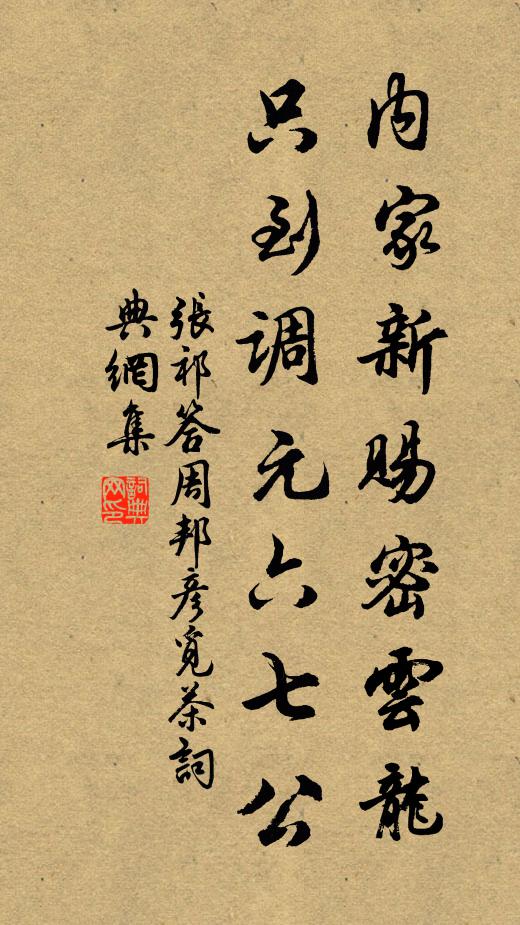 内家新賜密雲龍
只到調元六七公
張祁答周邦彦覓茶詞
典網集
詞典網印